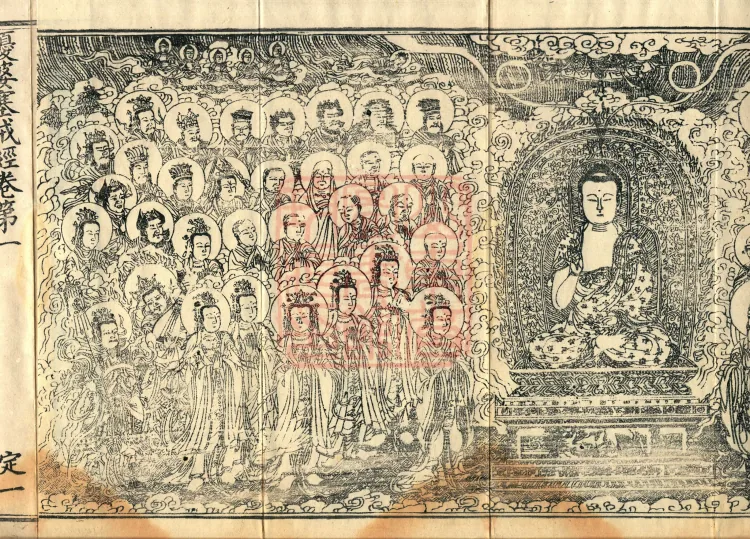 優婆塞戒經卷第一
定一